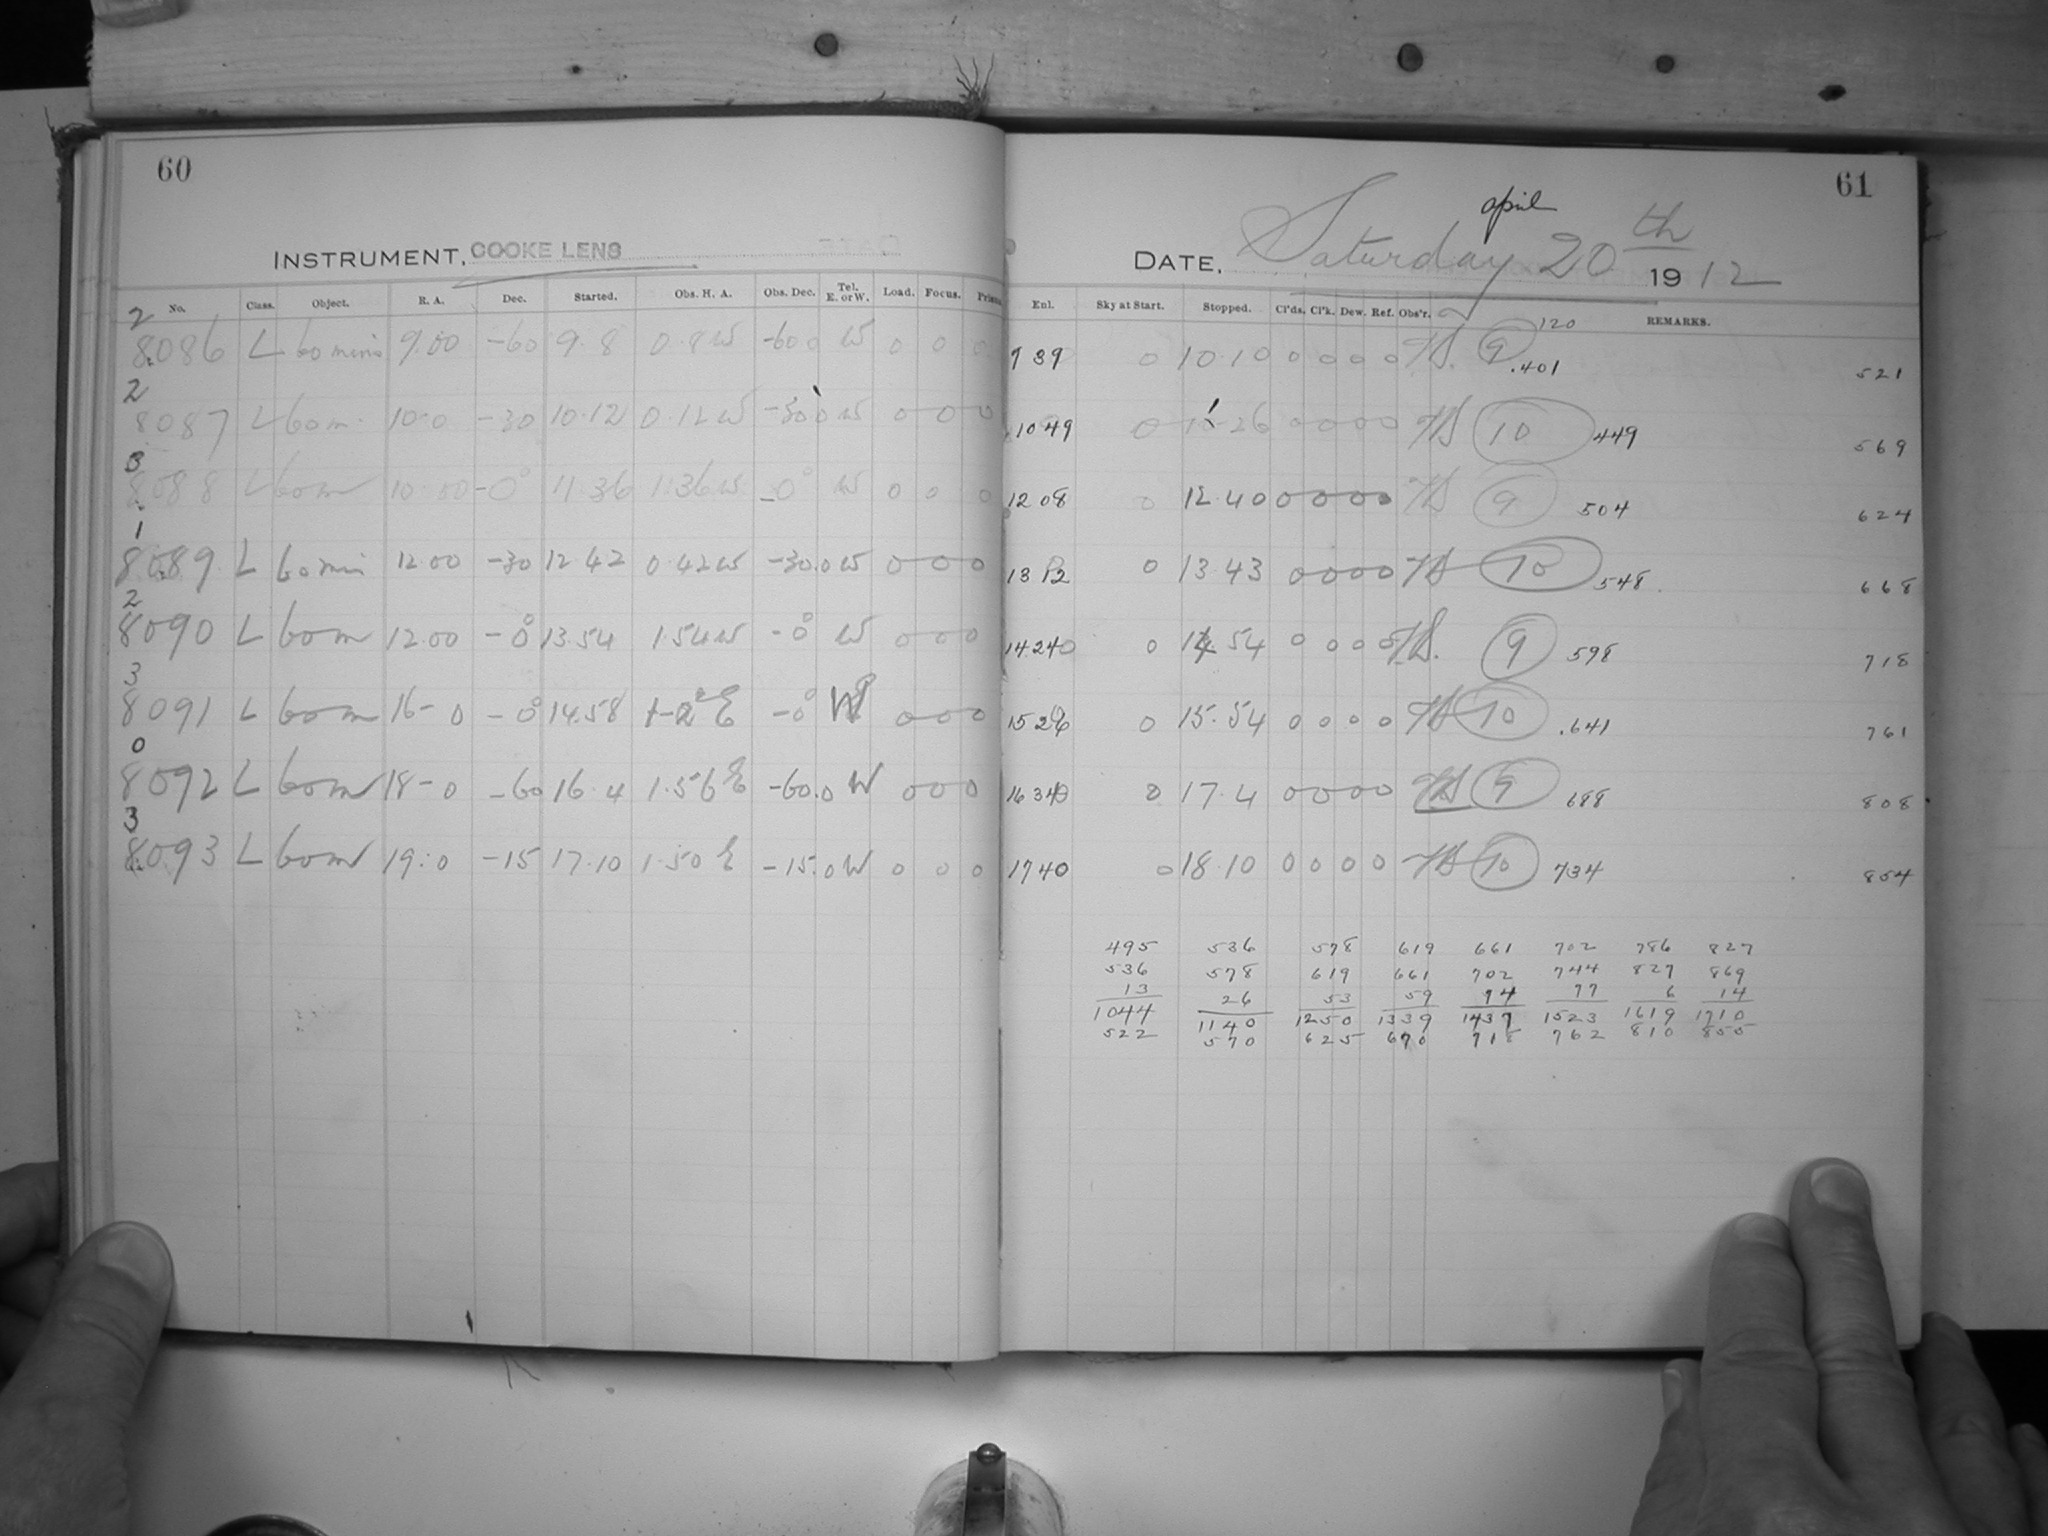 60
INSTRUMENT, COOKE LENS
No. Class. Object. R. A. Dec. Started. Obs. H. A. Obs. Dec. Tel. E. or W. Load. Focus. Prism.
2
8086 L 60 mins 9.00 -60 9.8 0.8 W -60 0 W 0 0 0
2
8087 L 60 m. 10-0 -30 10.12 0.12 W -30 0 W 0 0 0
3
8088 L 60m 10.00 -0° 11.36 1.36 W -0° W 0 0 0
1
8089 L 60 min 12.00 -30 12.42 0.42 W -30.0 W 0 0 0
2
8090 L 60m 12.00 -0° 13.54 1.54 W -0° W 0 0 0
3
8091 L 60m 16-0 -0° 14.58 1-2 E -0° W 0 0 0
0
8092 L 60m 18-0 -60 16.4 1.56 E -60.0 W 0 0 0
3
8093 L 60m 19.0 -15 17.10 1.50 E -15.0 W 0 0 0
61
april
DATE, Saturday 20th 1912
Enl. Sky at Start. Stopped. Cl'ds. Cl'k. Dew. Ref. Obs'r. REMARKS.
120
9 39 0 10.10 0 0 0 0 9 .401 521
10 49 0 11.26 0 0 0 0 10 449 569
12 08 0 12.40 0 0 0 0 9 504 624
13 12 0 13.43 0 0 0 0 10 548 668
14 24 0 14 54 0 0 0 0 9 598 718
15 26 0 15.54 0 0 0 0 10 .641 761
16 34 0 17.4 0 0 0 0 9 688 808
17 40 0 18.10 0 0 0 0 10 734 854
495 536 578 619 661 702 786 827
536 578 619 661 702 744 827 869
13 26 53 59 74 77 6 14
1044 1140 1250 1339 1437 1523 1619 1710
522 570 625 670 718 762 810 855